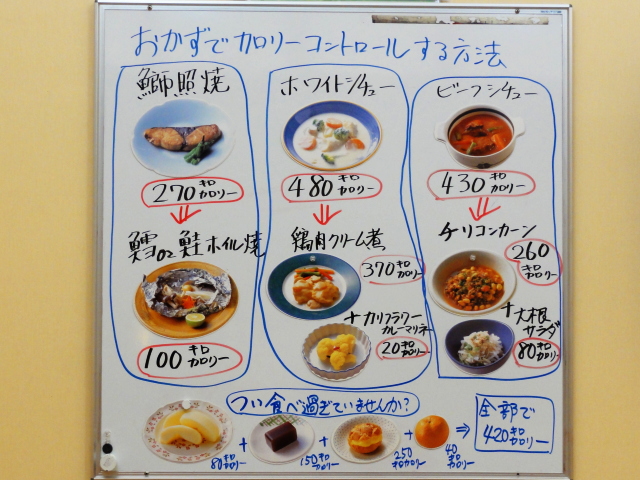 おかずでカロリーコントロールする方法
鰤照焼
270キロカロリー
鱈or鮭ホイル焼
100キロカロリー
ホワイトシチュー
480キロカロリー
鶏肉クリーム煮
370キロカロリー
+カリフラワー
カレーマリネ
20キロカロリー
ビーフシチュー
430キロカロリー
チリコンカーン
260キロカロリー
+大根
サラダ
80キロカロリー
つい食べ過ぎていませんか?
80キロカロリー
+
150キロカロリー
+
250キロカロリー
+
40キロカロリー
⇒
全部で
420キロカロリー